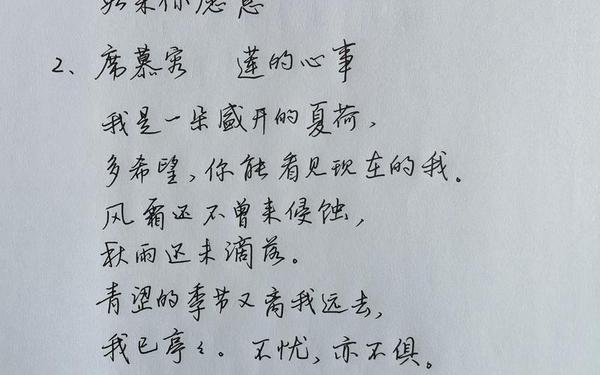 如果你愿意
2、席慕容 莲的心事
我是一朵盛开的夏荷，
多希望，你能看见现在的我。
风霜还不曾来侵蚀，
秋雨还未滴落。
青涩的季节又离我远去，
我已亭々。不忧，亦不惧。